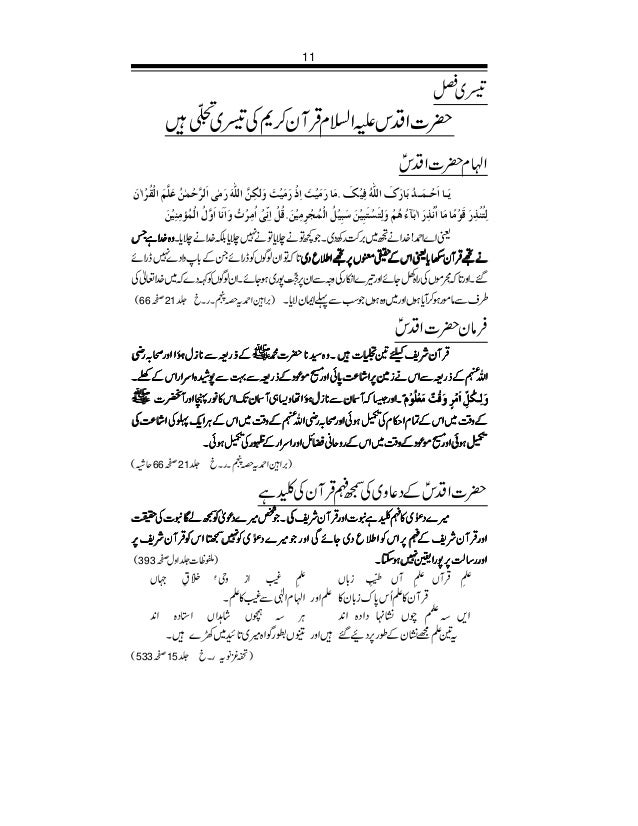 11
تیسری فصل
حضرت اقدس علیہ السلام قرآن کریم کی تیسری تجلّی ہیں
الہام حضرت اقدسؑ
یَـا اَحْـمَـدُ بَـارَکَ اللّٰہُ فِیْکَ ۔مَا رَمَیْتَ اِذْ رَمَیْتَ وَلٰکِنَّ اللّٰہَ رَمٰی اَلرَّحْمٰنُ عَلَّمَ الْقُرْاٰنَ
لِتُنْذِرَ قَوْمًا مَا اُنْذِرَ اٰبَاءُ ھُمْ وَلِتَسْتَبِیْنَ سَبِیْلُ الْمُجْرِمِیْنَ۔قُلْ اِنِّیْ اُمِرْتُ وَاَنَا اَوَّلُ الْمُؤْمِنِیْنَ
یعنی اے احمد! خدا نے تجھ میں برکت رکھ دی۔ جو کچھ تو نے چلایا تو نے نہیں چلایا بلکہ خدا نے چلایا۔وہ خدا ہے جس
نے تجھے قرآن سکھایا یعنی اس کے حقیقی معنوں پر تجھے اطلاع دی تا کہ تو ان لوگوں کو ڈرائے جن کے باپ دادے نہیں ڈرائے
گئے۔اور تا کہ مجرموں کی راہ کھل جائے اور تیرے انکار کی وجہ سے ان پر حجت پوری ہو جائے۔ان لوگوں کو کہہ دے کہ میں خدا تعالیٰ کی
طرف سے مامور ہو کر آیا ہوں اور میں وہ ہوں جو سب سے پہلے ایمان لایا۔ (براہین احمدیہ حصہ پنجم۔ر۔خ جلد 21 صفحہ 66)
فرمان حضرت اقدسؑ
قرآن شریف کیلئے تین تجلیات ہیں ۔وہ سیدنا حضرت محمدﷺ کے ذریعہ سے نازل ہوا اور صحابہ رضی
اللہ عنہم کے ذریعہ سے اس نے زمین پر اشاعت پائی اور مسیح موعود کے ذریعہ سے بہت سے پوشیدہ اسرار اس کے کھلے۔
وَلِـکُلِّ اَمْرٍ وَقْتٌ مَعْلُوْمٌ ۔اور جیسا کہ آسمان سے نازل ہوا تھا ویسا ہی آسمان تک اس کا نور پہنچا اور آنحضرت ﷺ
کے وقت میں اس کے تمام احکام کی تکمیل ہوئی اور صحابہ رضی اللہ عنہم کے وقت میں اس کے ہر ایک پہلو کی اشاعت کی
تکمیل ہوئی اور مسیح موعود کے وقت میں اس کے روحانی فضائل اور اسرار کے ظہور کی تکمیل ہوئی۔
(براہین احمدیہ حصہ پنجم ۔ر۔خ جلد 21 صفحہ 66 حاشیہ)
حضرت اقدسؑ کے دعاوی کی سمجھ فہم قرآن کی کلید ہے
میرے دعویٰ کا فہم کلید ہے نبوت اور قرآن شریف کی ۔جو شخص میرے دعویٰ کو سمجھ لے گا نبوت کی حقیقت
اور قرآن شریف کے فہم پر اس کو اطلاع دی جائے گی اور جو میرے دعویٰ کو نہیں سمجھتا اس کو قرآن شریف پر
اور رسالت پر پورا یقین نہیں ہو سکتا۔ (ملفوظات جلد اول صفحہ 393)
علمِ قرآں علمِ آں طیّب زباں علمِ غیب از وحیِ خلاّقِ جہاں
قرآن کا علم اُس پاک زبان کا علم اور الہام الٰہی سے غیب کا علم۔
ایں سہ علم چوں نشانہا دادہ اند ہر سہ ہمچوں شاہداں استادہ اند
یہ تین علم مجھے نشان کے طور پر دیئے گئے ہیں اور تینوں بطور گواہ میری تائید میں کھڑے ہیں۔
(تحفہ غزنویہ ۔ر۔خ جلد 15 صفحہ 533)